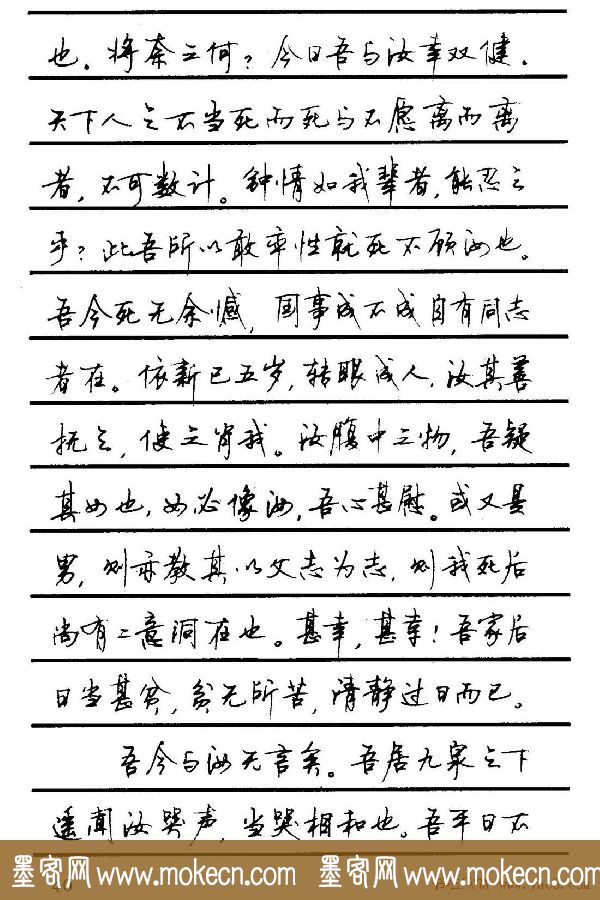 也。将奈之何?今日吾与汝幸双健.
天下人之不当死而死与不愿离而离
者,不可数计。钟情如我辈者,能忍之
乎?此吾所以敢率性就死不顾汝也。
吾今死无余憾,国事成不成自有同志
者在。依新已五岁,转眼成人.汝其善
抚之,使之肖我。汝腹中之物,吾疑
其女也,女必像汝,吾心甚慰。或又是
男,则亦教其以父志为志,则我死后
尚有二意洞在也。甚幸,甚幸!吾家后
日当甚贫,贫无所苦,清静过日而已。
吾今与汝无言矣。吾居九泉之下
遥闻汝哭声,当哭相和也。吾平日不
墨客网 www.mokecn.com 墨客网 www.mokecn.com